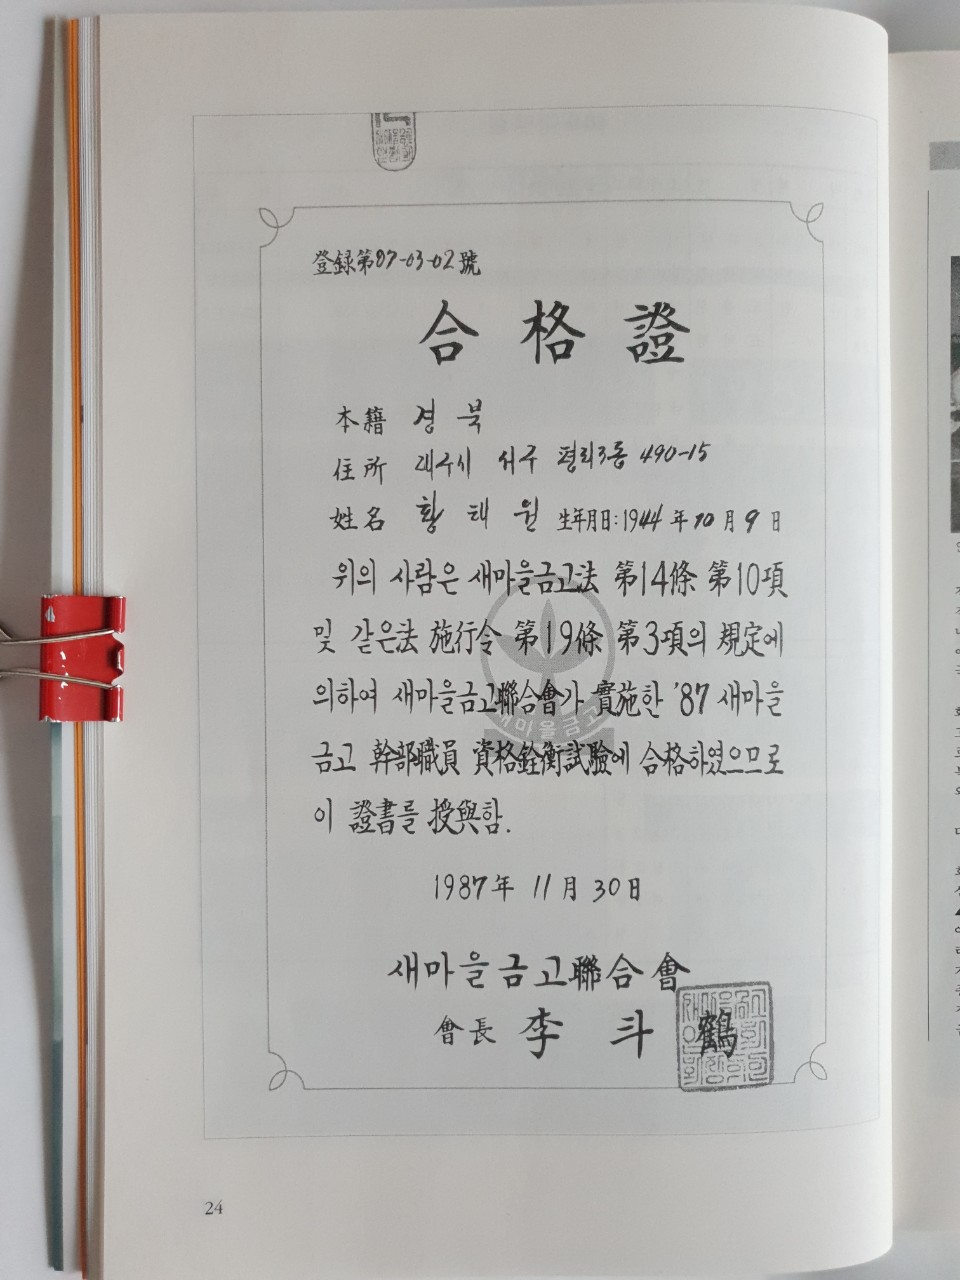 登録第87-03-02號
合格證
本籍 경북
住所 대구시 서구 평리3동 490-15
姓名 황태원 生年月日:1944年10月9日
위의 사람은 새마을금고法 第14條 第10項
및 같은法 施行令 第19條 第3項의 規定에
의하여 새마을금고聯合會가 實施한 '87 새마을
금고 幹部職員 資格銓衡試驗에 合格하였으므로
이 證書를 授與함.
새마을금고
1987年 11月 30日
새마을금고聯合會
會長 李斗鶴
24